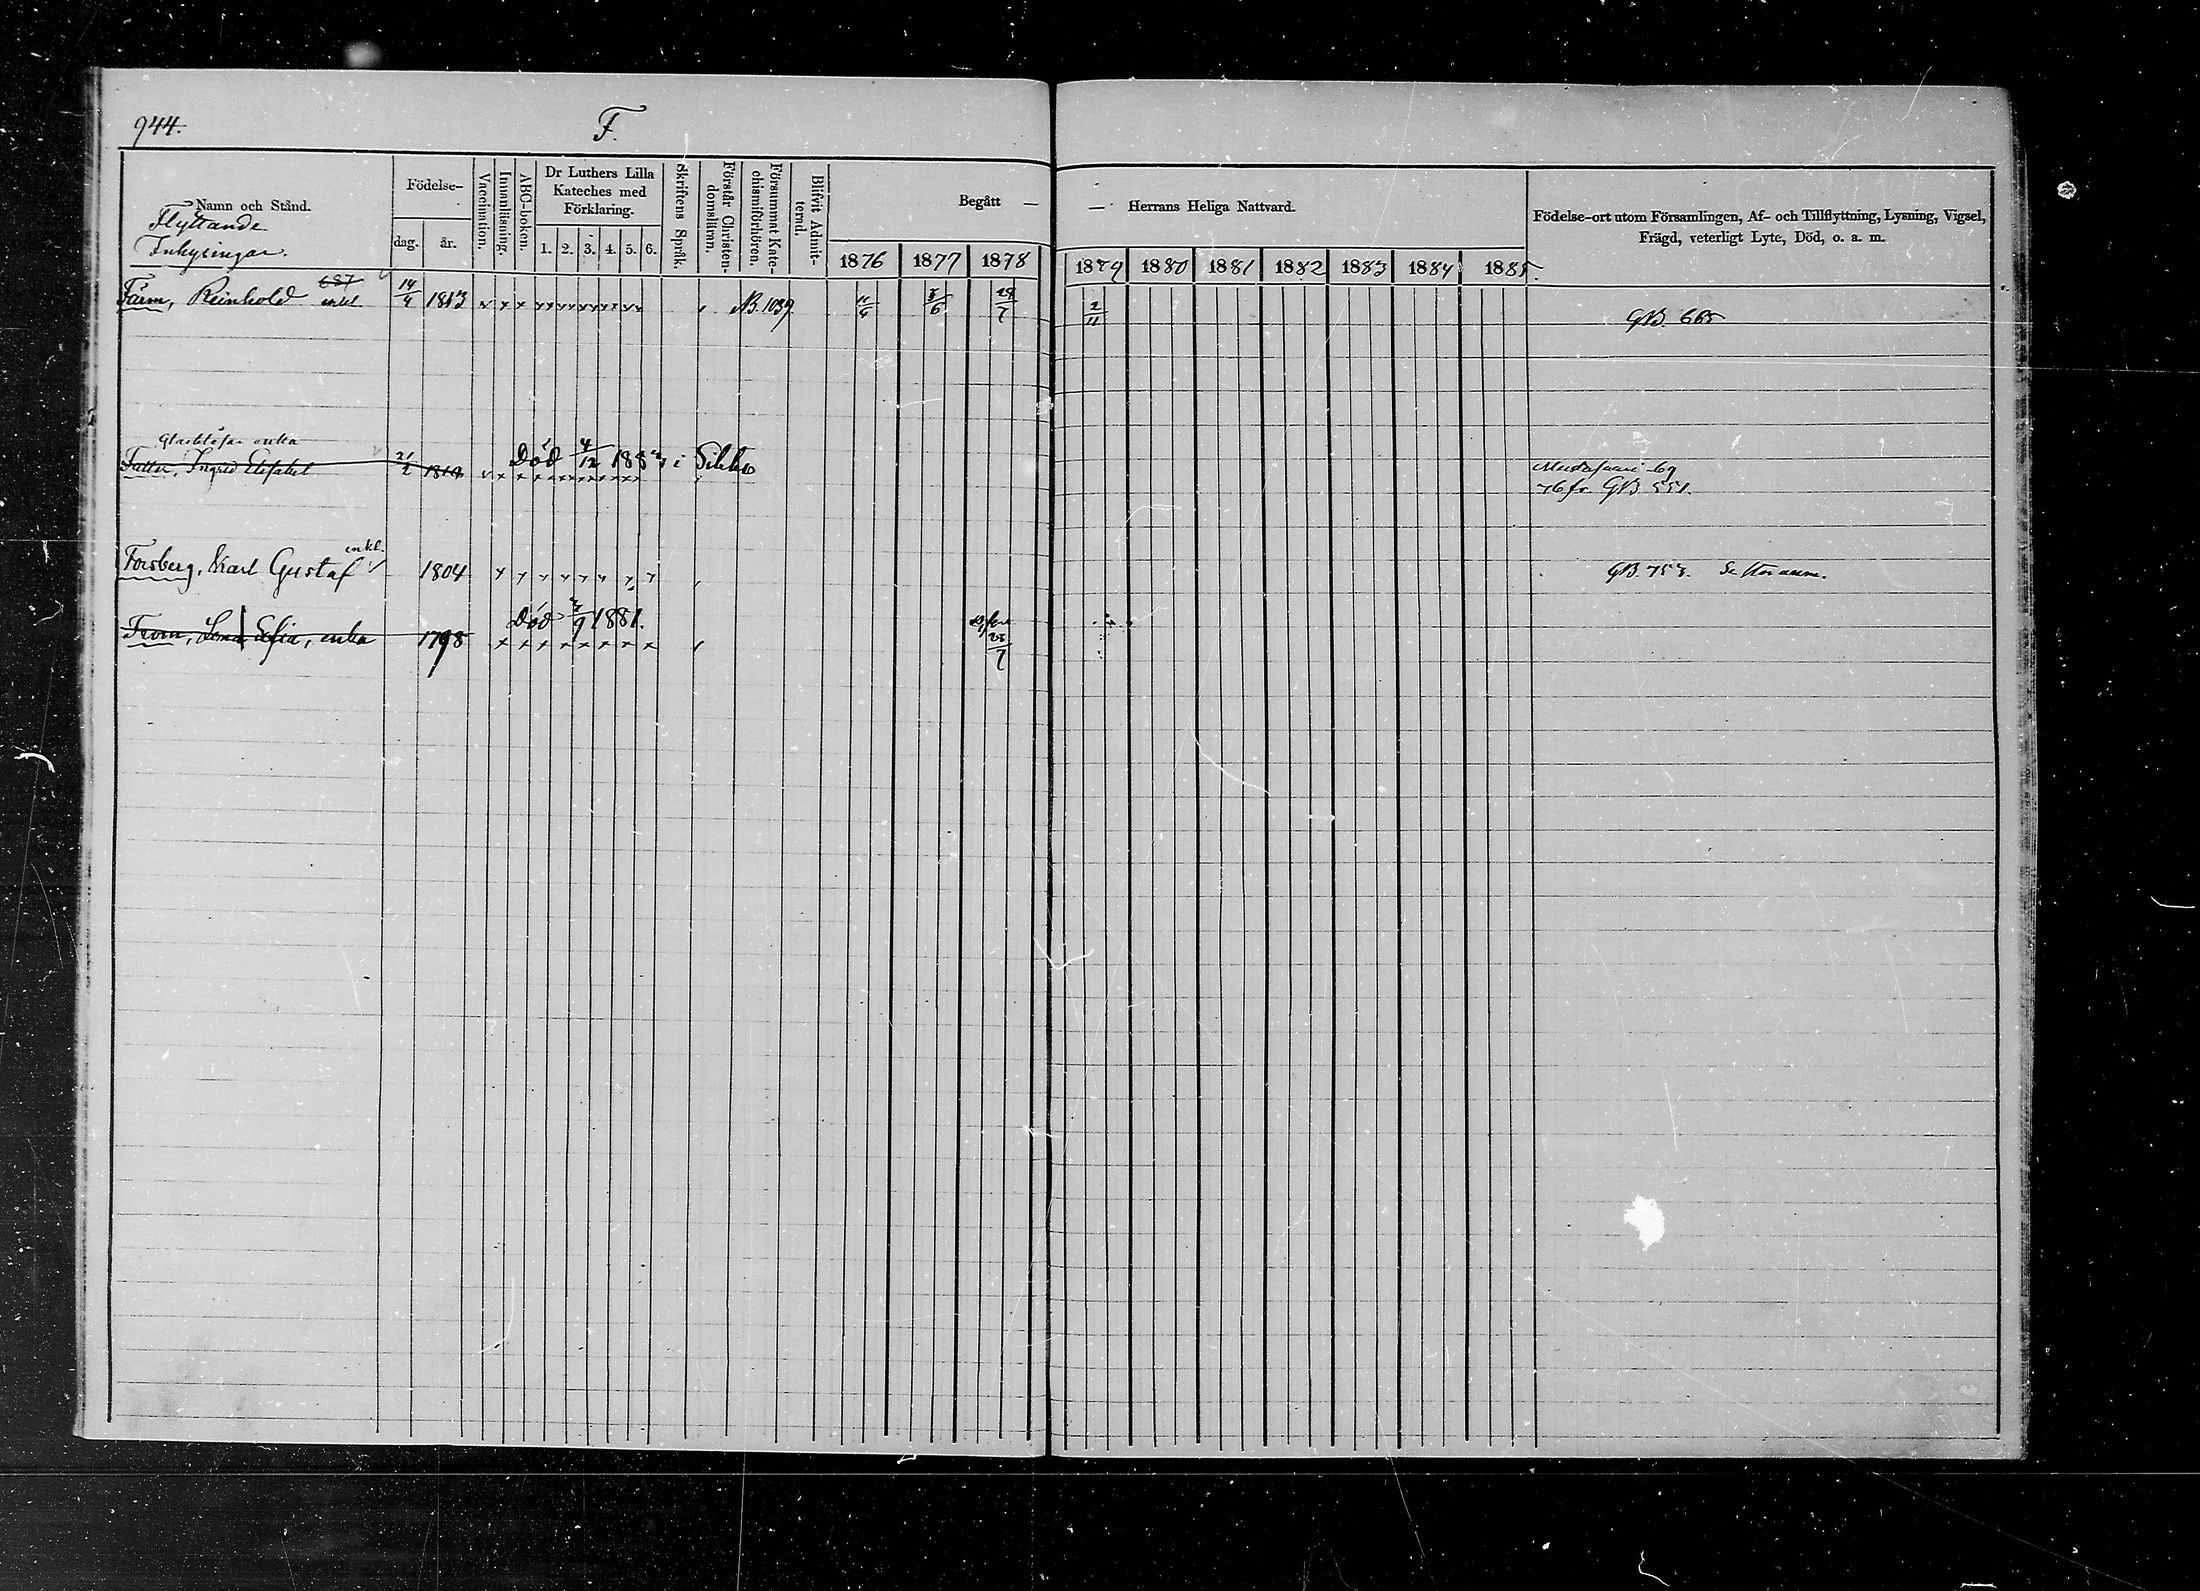 944.
F.
Namn och Stånd.
Flyttande
Inhysingar.
Födelse-
dag.
år.
Vaccination.
Innanläsning.
ABC-boken.
Dr Luthers Lilla
Kateches med
Förklaring.
1. 2. 3. 4. 5. 6.
Skriftens Språk.
Förstår Christen-
domsläran.
Försummat Kate-
chismiförhören.
Blifvit Admit-
terad.
Begått —
— Herrans Heliga Nattvard.
1876 1877 1878
1879 1880 1881 1882 1883 1884 1885.
Födelse-ort utom Församlingen, Af- och Tillflyttning, Lysning, Vigsel,
Frägd, veterligt Lyte, Död, o. a. m.
687
Färm, Reinhold enkl. 14/4 1813 NB. 1039. 11/4 3/6 28/7 2/11 GB. 665
enka
Ingrid Elisabet 21/2 Död 4/12 i
76 fr. GB. 551.
enkl.
Forsberg, Karl Gustaf 1804 GB. 753.
From, Lena Sofia, enka 1798 Död 3/9 1881. 25/7